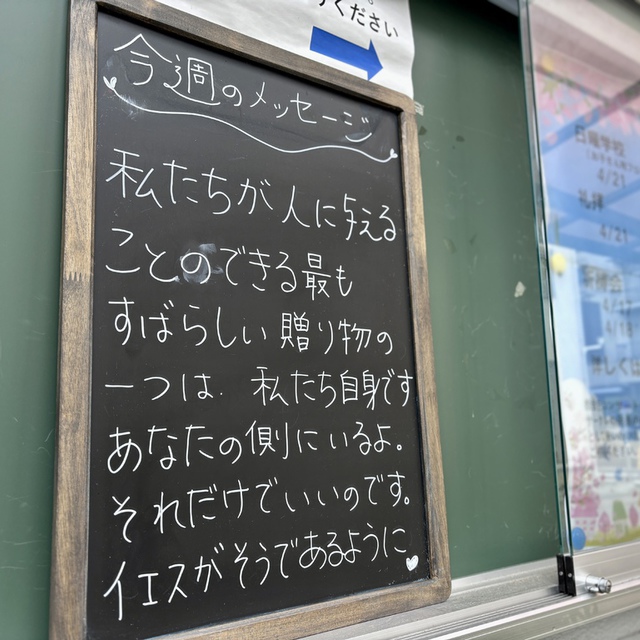 ください
今週のメッセージ
私たちが人に与える
ことのできる最も
すばらしい贈り物の
一つは 私たち自身です
あなたの側にいるよ。
それだけでいいのです。
イエスがそうであるように
日曜学校
4/21
礼拝
4/21